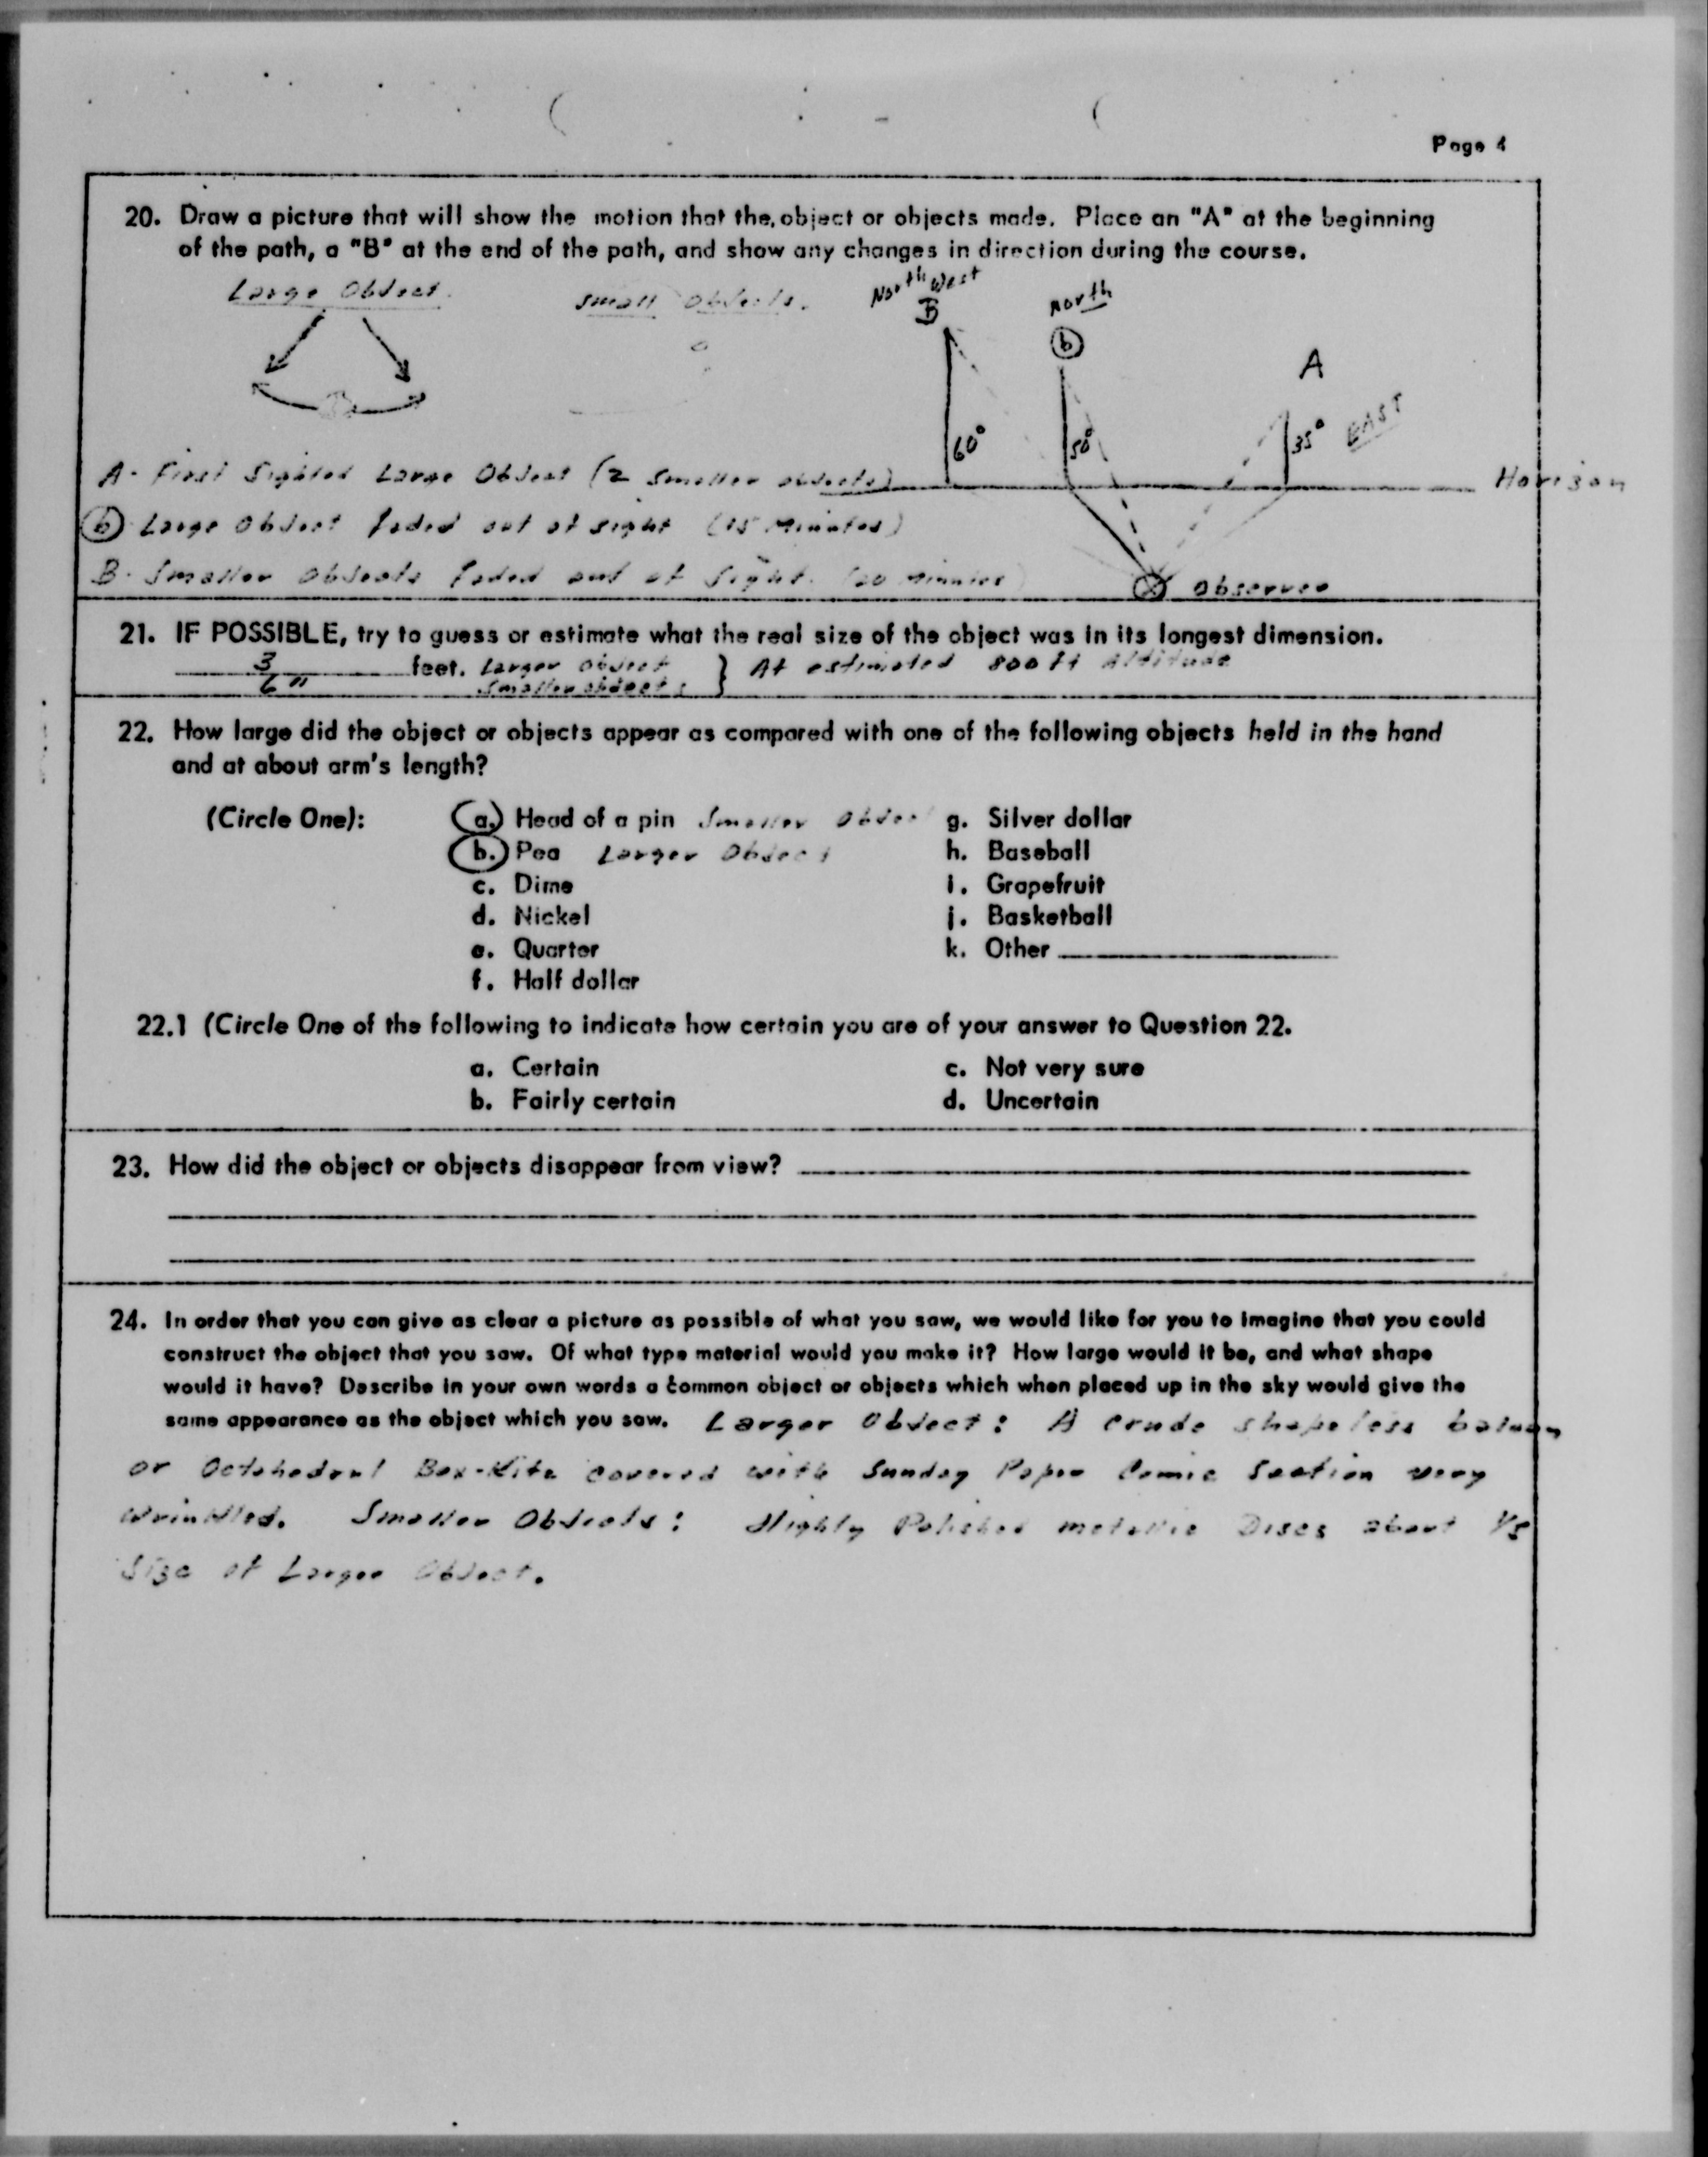 Page 4
20. Draw a picture that will show the motion that the object or objects made. Place an "A" at the beginning
of the path, a "B" at the end of the path, and show any changes in direction during the course.
Large Object.
Small Objects.
North West
B
North
b
A
60°
50°
35°
EAST
A - First Sighted Large Object (2 Smaller objects)
Horizon
b Large Object faded out of sight (15 Minutes)
B - Smaller Objects faded out of Sight. (20 minutes)
X Observer
21. IF POSSIBLE, try to guess or estimate what the real size of the object was in its longest dimension.
3 feet. Larger Object } At estimated 800 ft Altitude
6" Smaller objects
22. How large did the object or objects appear as compared with one of the following objects held in the hand
and at about arm's length?
(Circle One):
a. Head of a pin Smaller Object
b. Pea Larger Object
c. Dime
d. Nickel
e. Quarter
f. Half dollar
g. Silver dollar
h. Baseball
i. Grapefruit
j. Basketball
k. Other
22.1 (Circle One of the following to indicate how certain you are of your answer to Question 22.
a. Certain
b. Fairly certain
c. Not very sure
d. Uncertain
23. How did the object or objects disappear from view?
24. In order that you can give as clear a picture as possible of what you saw, we would like for you to imagine that you could
construct the object that you saw. Of what type material would you make it? How large would it be, and what shape
would it have? Describe in your own words a common object or objects which when placed up in the sky would give the
same appearance as the object which you saw. Larger Object: A crude shapeless
or Octahedral Box-Kite covered with Sunday Paper Comic Section very
wrinkled. Smaller Objects: Highly Polished metallic Discs about 1/5
Size of Larger Object.